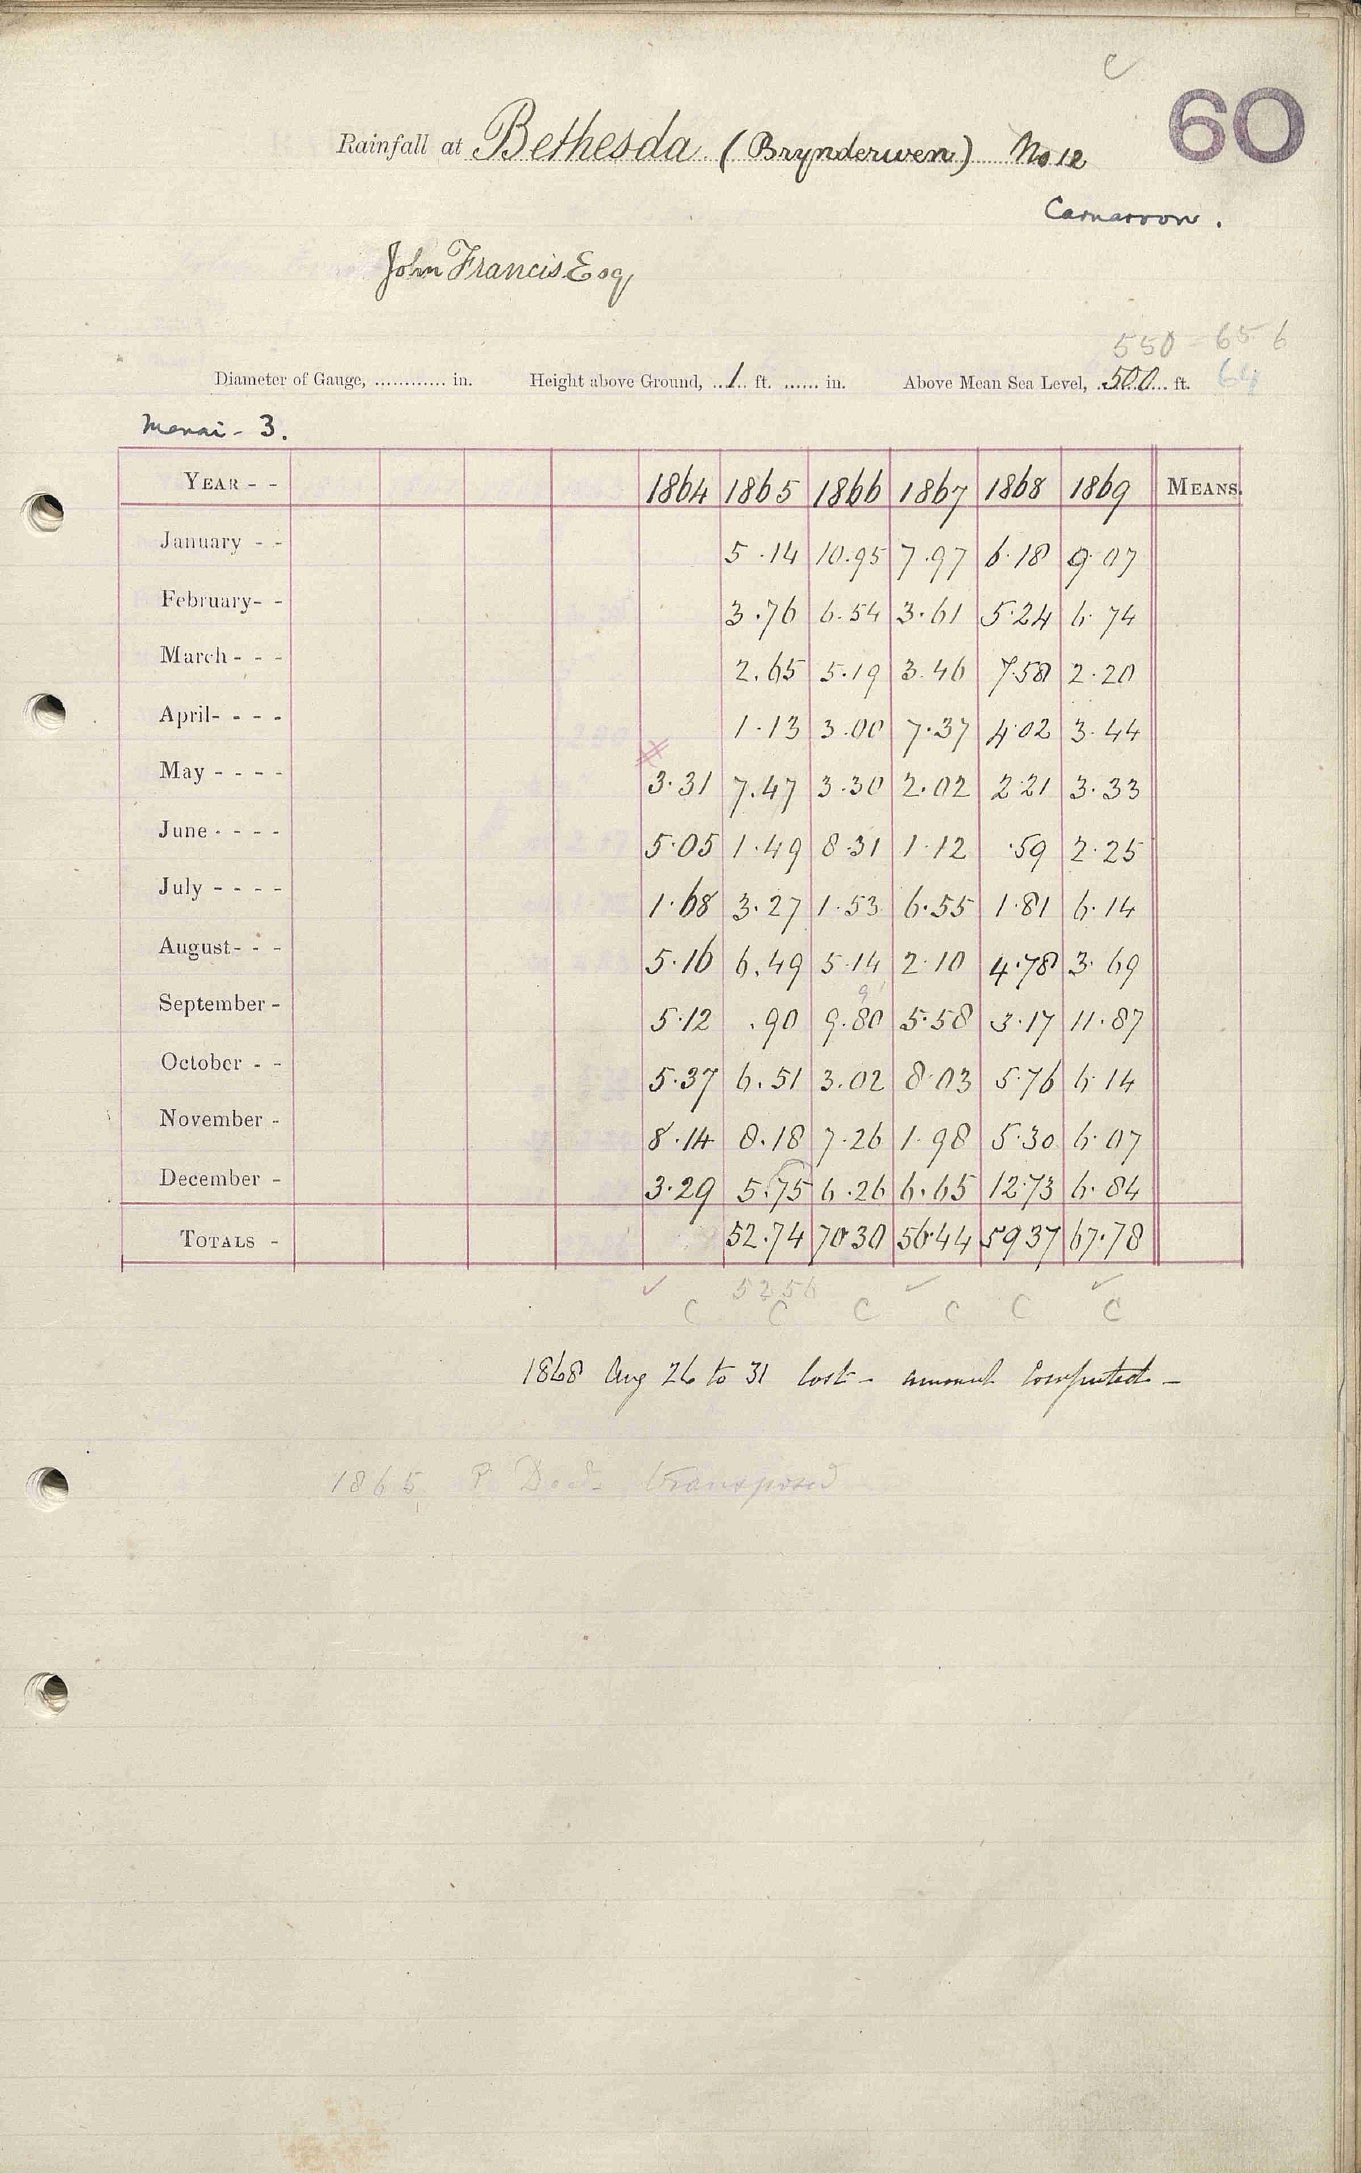 c
60
Rainfall at Bethesda (Brynderwen) No 12
Carnarvon.
John Francis Esq
550 - 656
Diameter of Gauge, ............ in. Height above Ground, ...1... ft. ...... in. Above Mean Sea Level, ..500... ft. 64
Menai - 3.
YEAR - - 1864 1865 1866 1867 1868 1869 MEANS.
January - - 5.14 10.95 7.97 6.18 9.07
February- - 3.76 6.54 3.61 5.24 6.74
March - - - 2.65 5.19 3.46 7.58 2.20
April- - - - 1.13 3.00 7.37 4.02 3.44
May - - - - 3.31 7.47 3.30 2.02 2.21 3.33
June - - - - 5.05 1.49 8.31 1.12 .59 2.25
July - - - - 1.68 3.27 1.53 6.55 1.81 6.14
August- - - 5.16 6.49 5.14 2.10 4.78 3.69
9
September - 5.12 .90 9.80 5.58 3.17 11.87
October - - 5.37 6.51 3.02 8.03 5.76 6.14
November - 8.14 8.18 7.26 1.98 5.30 6.07
December - 3.29 5.75 6.26 6.65 12.73 6.84
TOTALS - 52.74 70.30 56.44 59.37 67.78
52 56
C C C C C C
1868 Aug 26 to 31 lost - amount computed -
1865 ? Dec. transposed